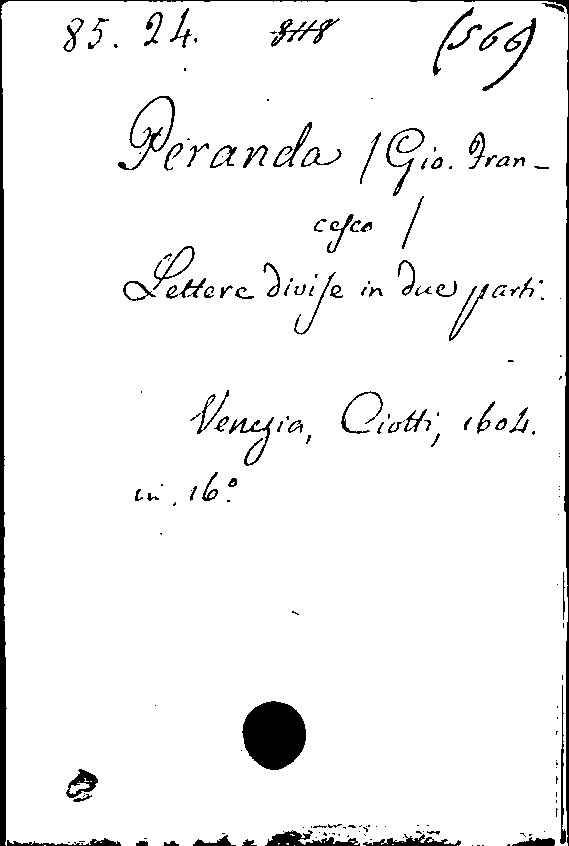 85. 24. (566)
Peranda / Gio. Fran-
cesco /
Lettere divise in due parti.
Venezia, Ciotti, 1604.
in 16º